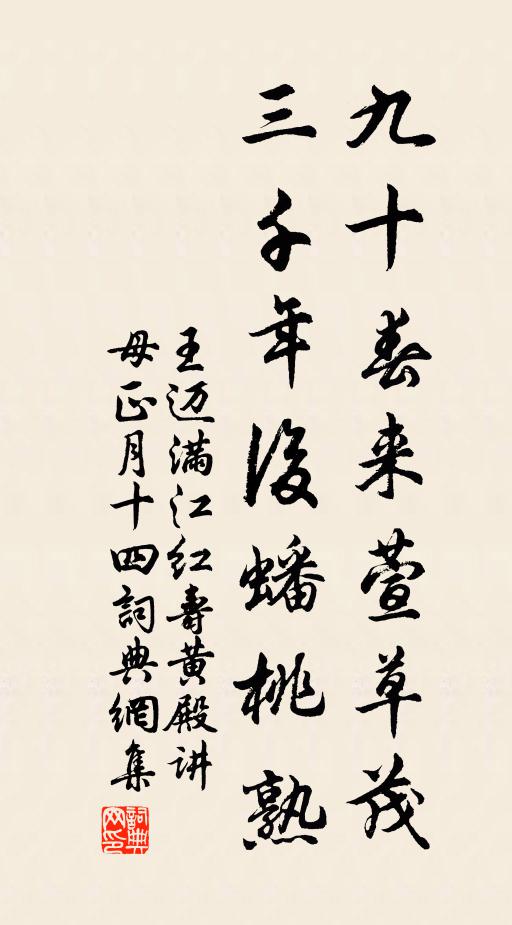 九十春来萱草茂
三千年後蟠桃熟
王迈满江红壽黄殿讲
母正月十四詞典網集
詞典網印